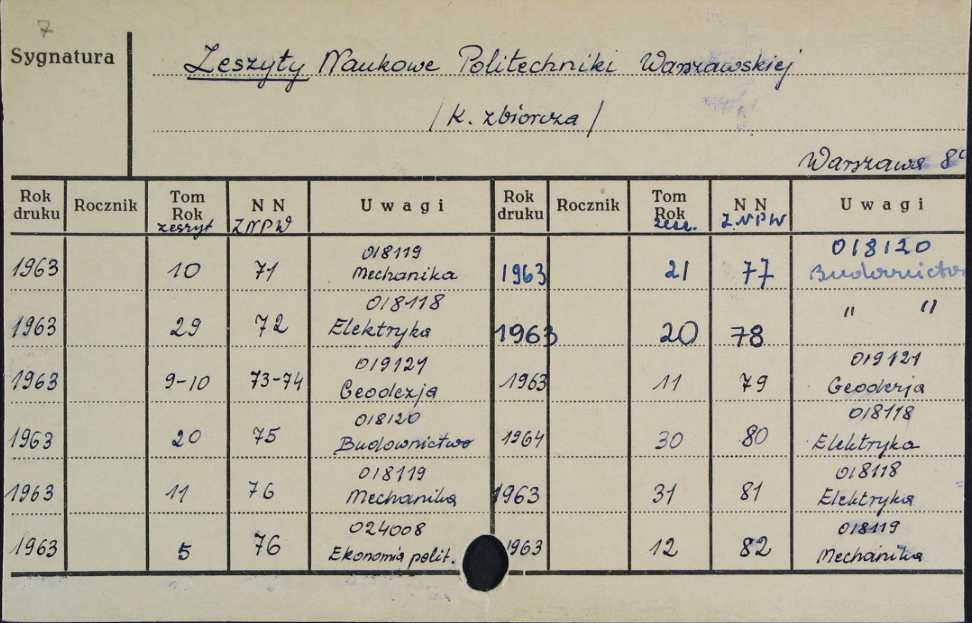 7
Sygnatura
Zeszyty Naukowe Politechniki Warszawskiej
/K. zbiorcza/
Warszawa 8°
Rok druku Rocznik Tom Rok zeszyt N N ZNPW Uwagi Rok druku Rocznik Tom Rok zesz. N N ZNPW Uwagi
1963 10 71 018119 Mechanika 1963 21 77 018120 Budownictwo
1963 29 72 018118 Elektryka 1963 20 78 " "
1963 9-10 73-74 019121 Geodezja 1963 11 79 019121 Geodezja
1963 20 75 018120 Budownictwo 1964 30 80 018118 Elektryka
1963 11 76 018119 Mechanika 1963 31 81 018118 Elektryka
1963 5 76 024008 Ekonomia polit. 1963 12 82 018119 Mechanika